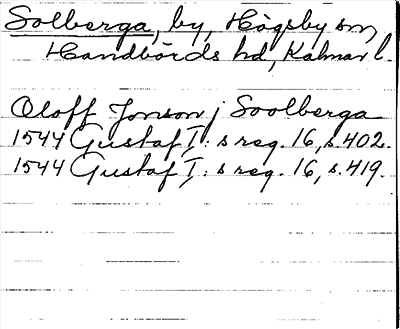 Solberga, by, Högsby sn,
Handbörds hd, Kalmar l.
Oloff Jonson j Soolberga
1544 Gustaf I: s reg. 16, s. 402.
1544 Gustaf I: s reg. 16, s. 419.